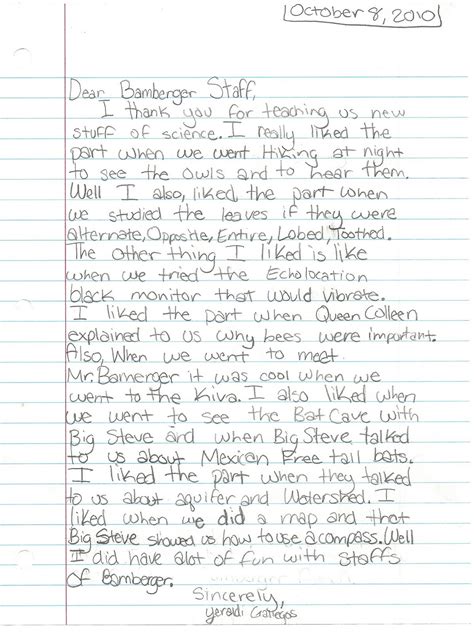 October 8, 2010
Dear Bamberger Staff,
I thank you for teaching us new
stuff of science. I really liked the
part when we went Hiking at night
to see the owls and to hear them.
Well I also, liked the part when
we studied the leaves if they were
alternate, Opposite, Entire, Lobed, Toothed.
The other thing I liked is like
when we tried the Echolocation
black monitor that would vibrate.
I liked the part when Queen Colleen
explained to us why bees were important.
Also, When we went to meet
Mr. Bamerger it was cool when we
went to the Kiva. I also liked when
we went to see the Bat Cave with
Big Steve and when Big Steve talked
to us about Mexican Free tail bats.
I liked the part when they talked
to us about aquifer and Watershed. I
liked when we did a map and that
Big Steve showed us how to use a compass. Well
I did have alot of fun with staffs
Of Bamberger.
Sincerely,
Yeraldi Gallegos